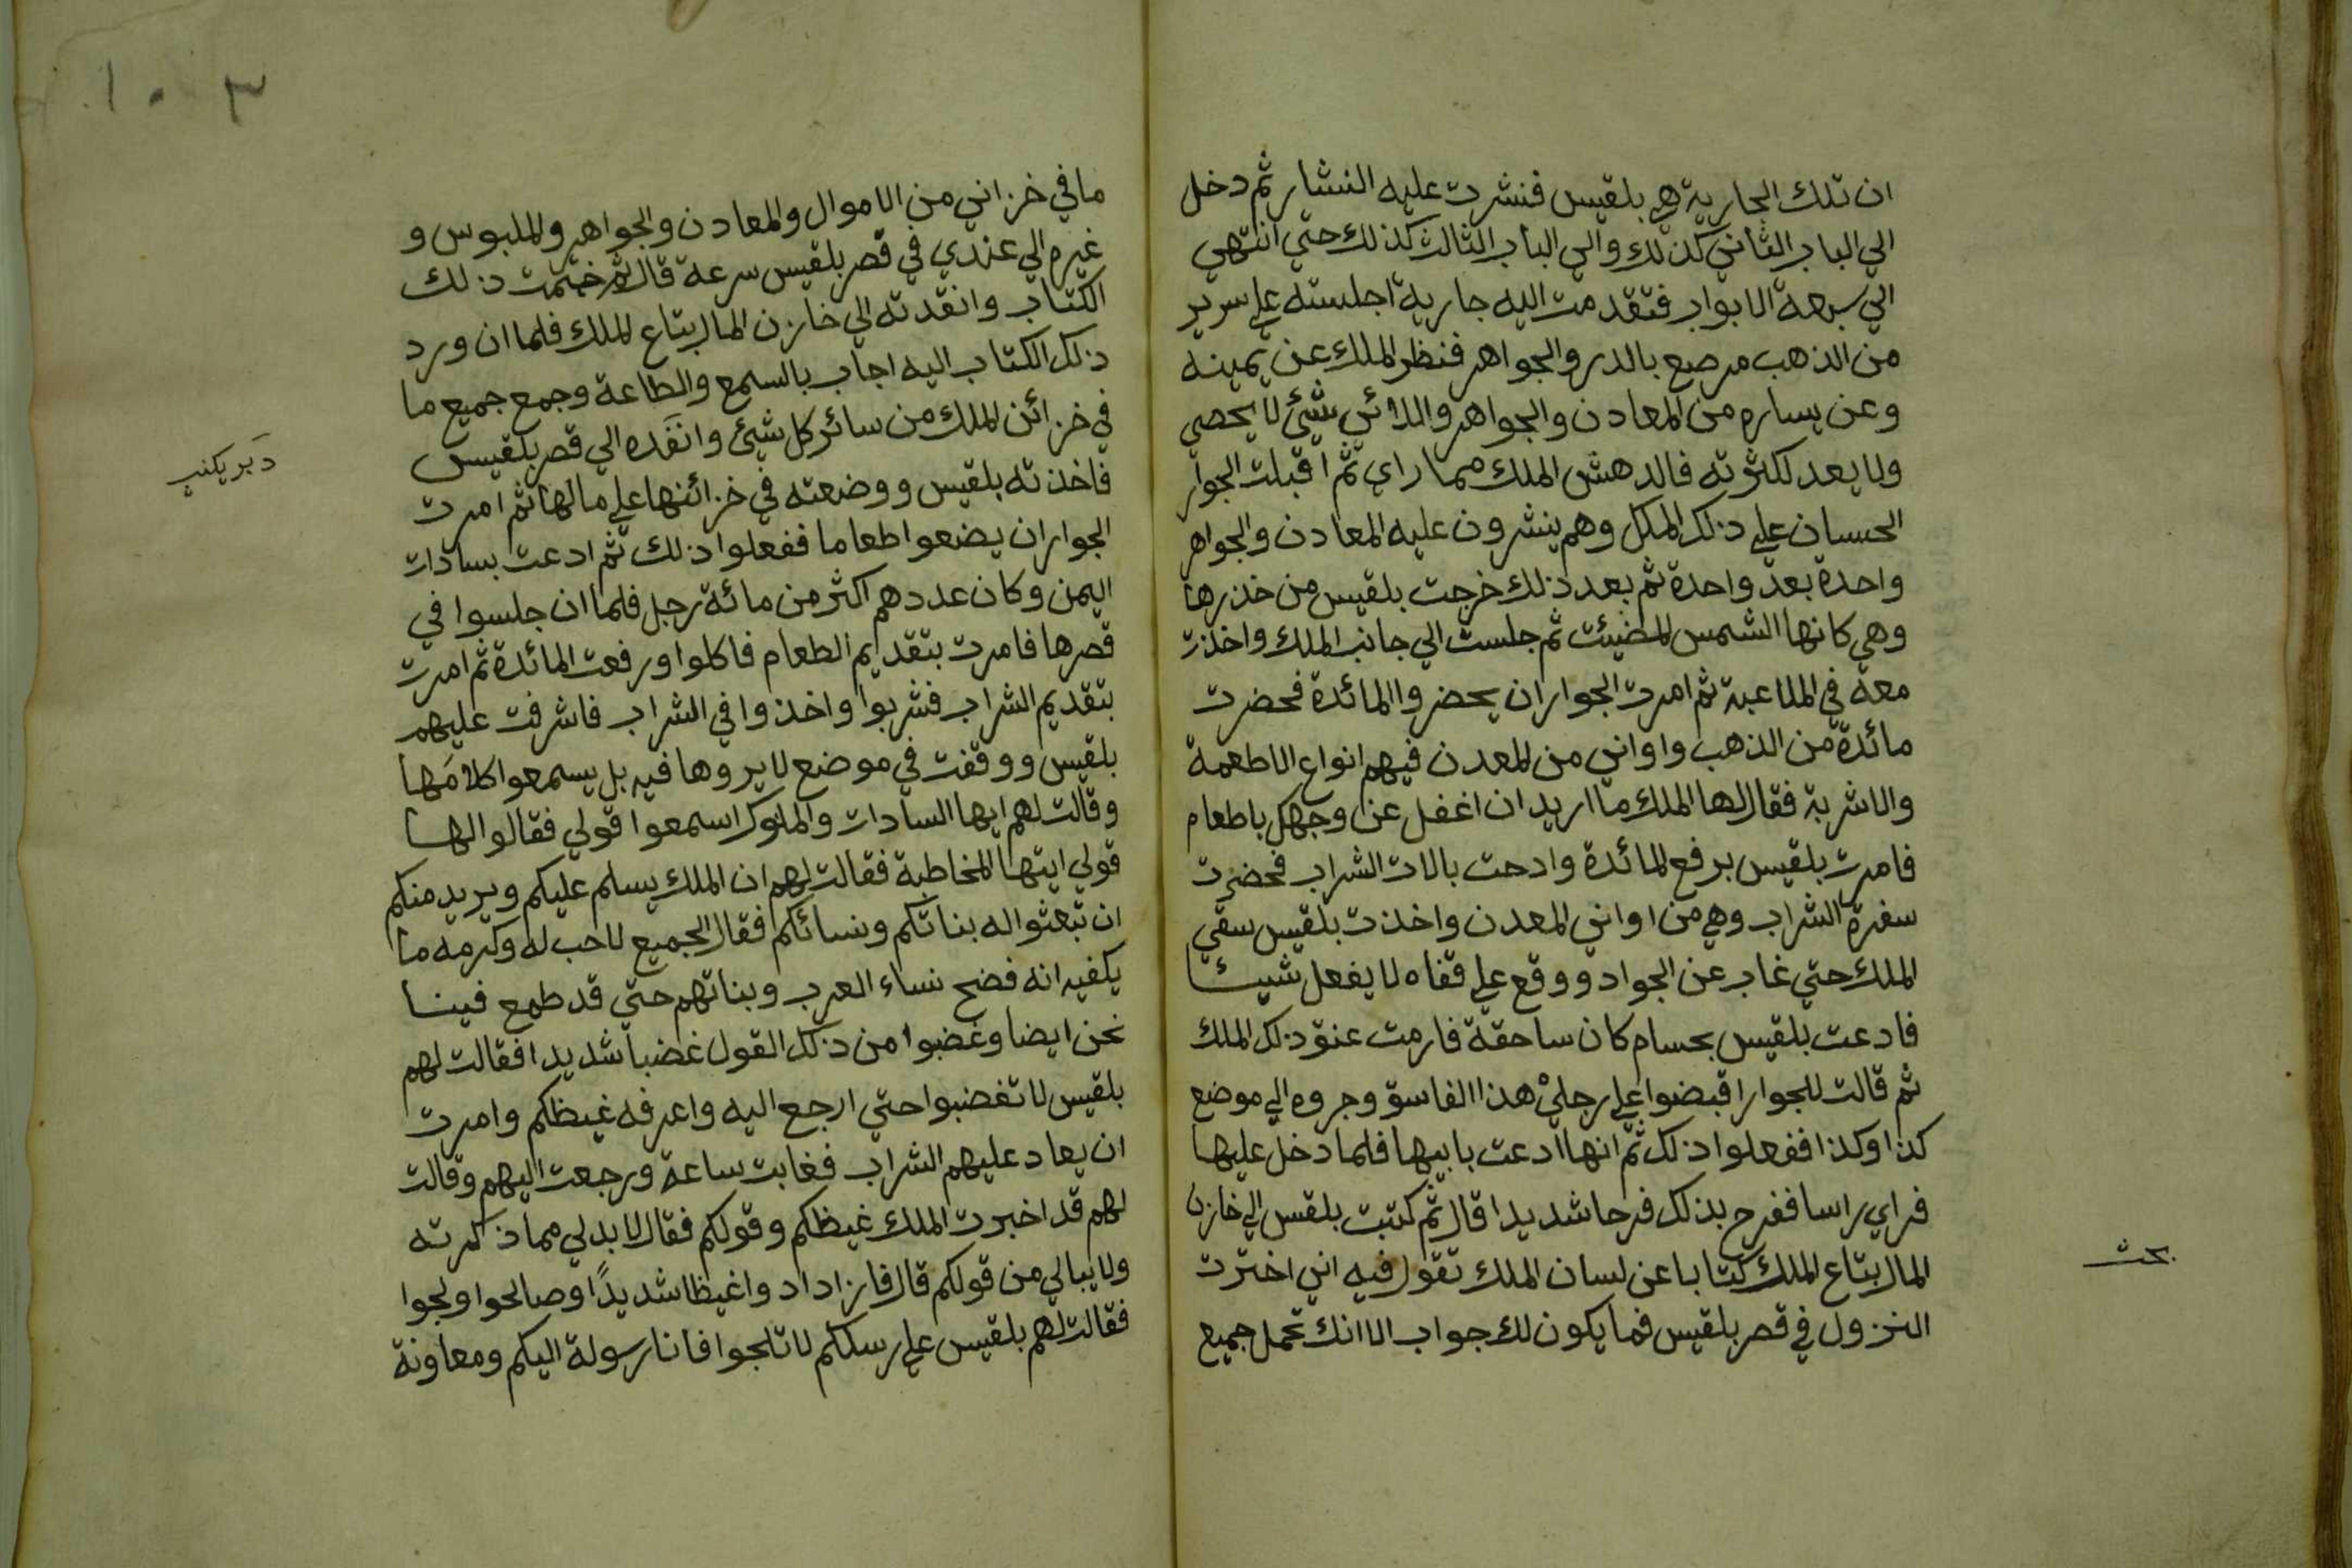 ان تلك الجارية هي بلقيس فنشرت عليه النشار ثم دخل
الي الباب الثاني كذلك والي الباب الثالث كذلك حتي انتهي
الي سبعة الابواب فتقدمت اليه جارية اجلسته علي سرير
من الذهب مرصع بالدر والجواهر فنظر الملك عن يمينه
وعن يساره من المعادن والجواهر واللائس شيئ لا يحصي
ولا يعد لكثرته فالدهش الملك مما راي ثم اقبلت الجوار
الحسان علي ذلك المكل وهم ينشرون عليه المعادن والجواهر
واحدة بعد واحدة ثم بعد ذلك خرجت بلقيس من خذرها
وهي كانها الشمس المضيئت ثم جلست الي جانب الملك واخذت
معه في الملاعبة ثم امرت الجوار ان يحضروا المائدة فحضرت
مائدة من الذهب واواني من المعدن فيهم انواع الاطعمة
والاشربة فقال لها الملك ما اريد ان اغفل عن وجهك باطعام
فامرت بلقيس برفع المائدة وادحت بالات الشراب فحضرت
سفرة الشراب وهي من اواني المعدن واخذت بلقيس سقي
الملك حتي غاب عن الجواد ووقع علي قفاه لا يفعل شيئا
فادعت بلقيس بحسام كان ساحقة فارمت عنق ذلك الملك
ثم قالت للجوار اقبضوا علي رجلي هذا الفاسق وجروه الي موضع
كذا وكذا ففعلوا ذلك ثم انها ادعت بابيها فلما دخل عليها
فراي راسا ففرح بذلك فرحا شديدا قال ثم كتبت بلقس الي خازن
المال بتاع الملك كتابا عن لسان الملك تقول فيه اني اخترت
النزول في قصر بلقيس فما يكون لك جواب الا انك تحمل جميع
بحث
١٠٣
ما في خزاني من الاموال والمعادن والجواهر والملبوس و
غيره الي عندي في قصر بلقيس سرعة قال ثم ختمت ذلك
الكتاب وانقدته الي خازن المال بتاع الملك فلما ان ورد
ذلك الكتاب اليه اجاب بالسمع والطاعة وجمع جميع ما
في خزائن الملك من سائر كل شيئ وانقَده الي قصر بلقيس
فاخذته بلقيس ووضعته في خزائنها علي مالها ثم امرت
الجوار ان يضعوا طعاما ففعلوا ذلك ثم ادعت بسادات
اليمن وكان عددهم اكثر من مائة رجل فلما ان جلسوا في
قصرها فامرت بتقدايم الطعام فاكلوا ورفعت المائدة ثم امرت
بتقديم الشراب فشربوا واخذوا في الشراب فاشرفت عليهم
بلقيس ووقفت في موضع لا يروها فيه بل يسمعوا كلامَها
وقالت لهم ايها السادات والملوك اسمعوا قولي فقالوا لها
قولي ايتها المخاطبة فقالت لهم ان الملك يسلم عليكم ويريد منكم
ان تبعثوا له بناتكم ونسائكم فقال الجميع لا حب له وكرمه ما
يكفيه انه فضح نساء العرب وبناتهم حتي قد طمع فينا
نحن ايضا وغضبوا من ذلك القول غضبا شديدا فقالت لهم
بلقيس لا تغضبوا حتي ارجع اليه واعرفه غيظكم وامرت
ان يعاد عليهم الشراب فغابت ساعة ورجعت اليهم وقالت
لهم قد اخبرت الملك غيظكم وقولكم فقال لا بد لي مما ذكرته
ولا يبالي من قولكم قال فازدادوا غيظا شديدًا وصالحوا ولجوا
فقالت لهم بلقيس علي رسلكم لا تلجوا فانا رسولة اليكم ومعاونة